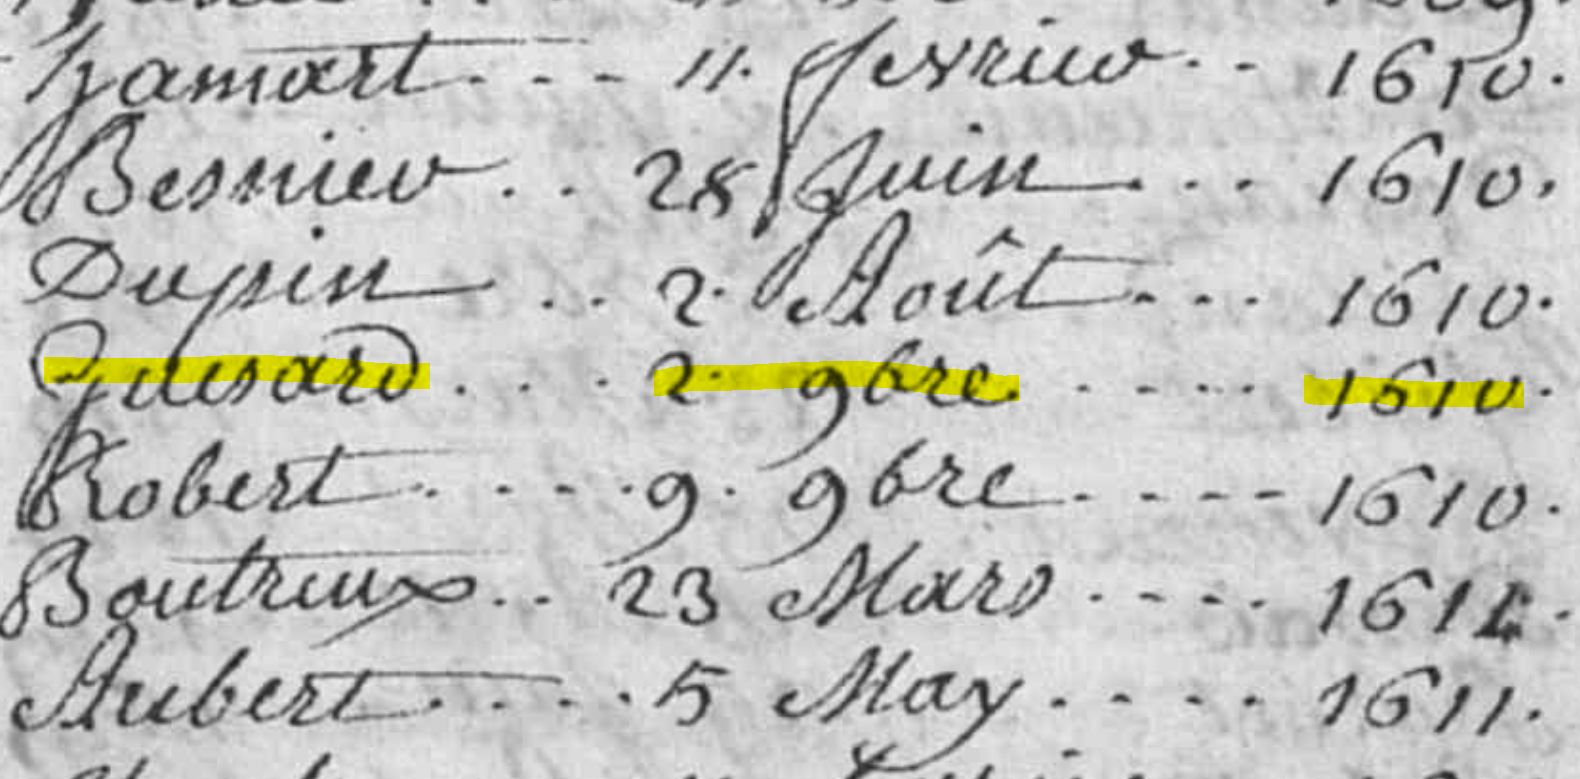 hamart - - - 11. fevrier . . - 1610.
Besnier . . 28 Juin . . . 1610.
Dupin . . 2. Août - - - 1610.
Guerard . . . 2. 9bre - - - - 1610.
Robert - - - - 9. 9bre - - - - 1610.
Boutreux . . 23 Mars - - - - 1611.
Aubert - - - - 5 May - - - - 1611.